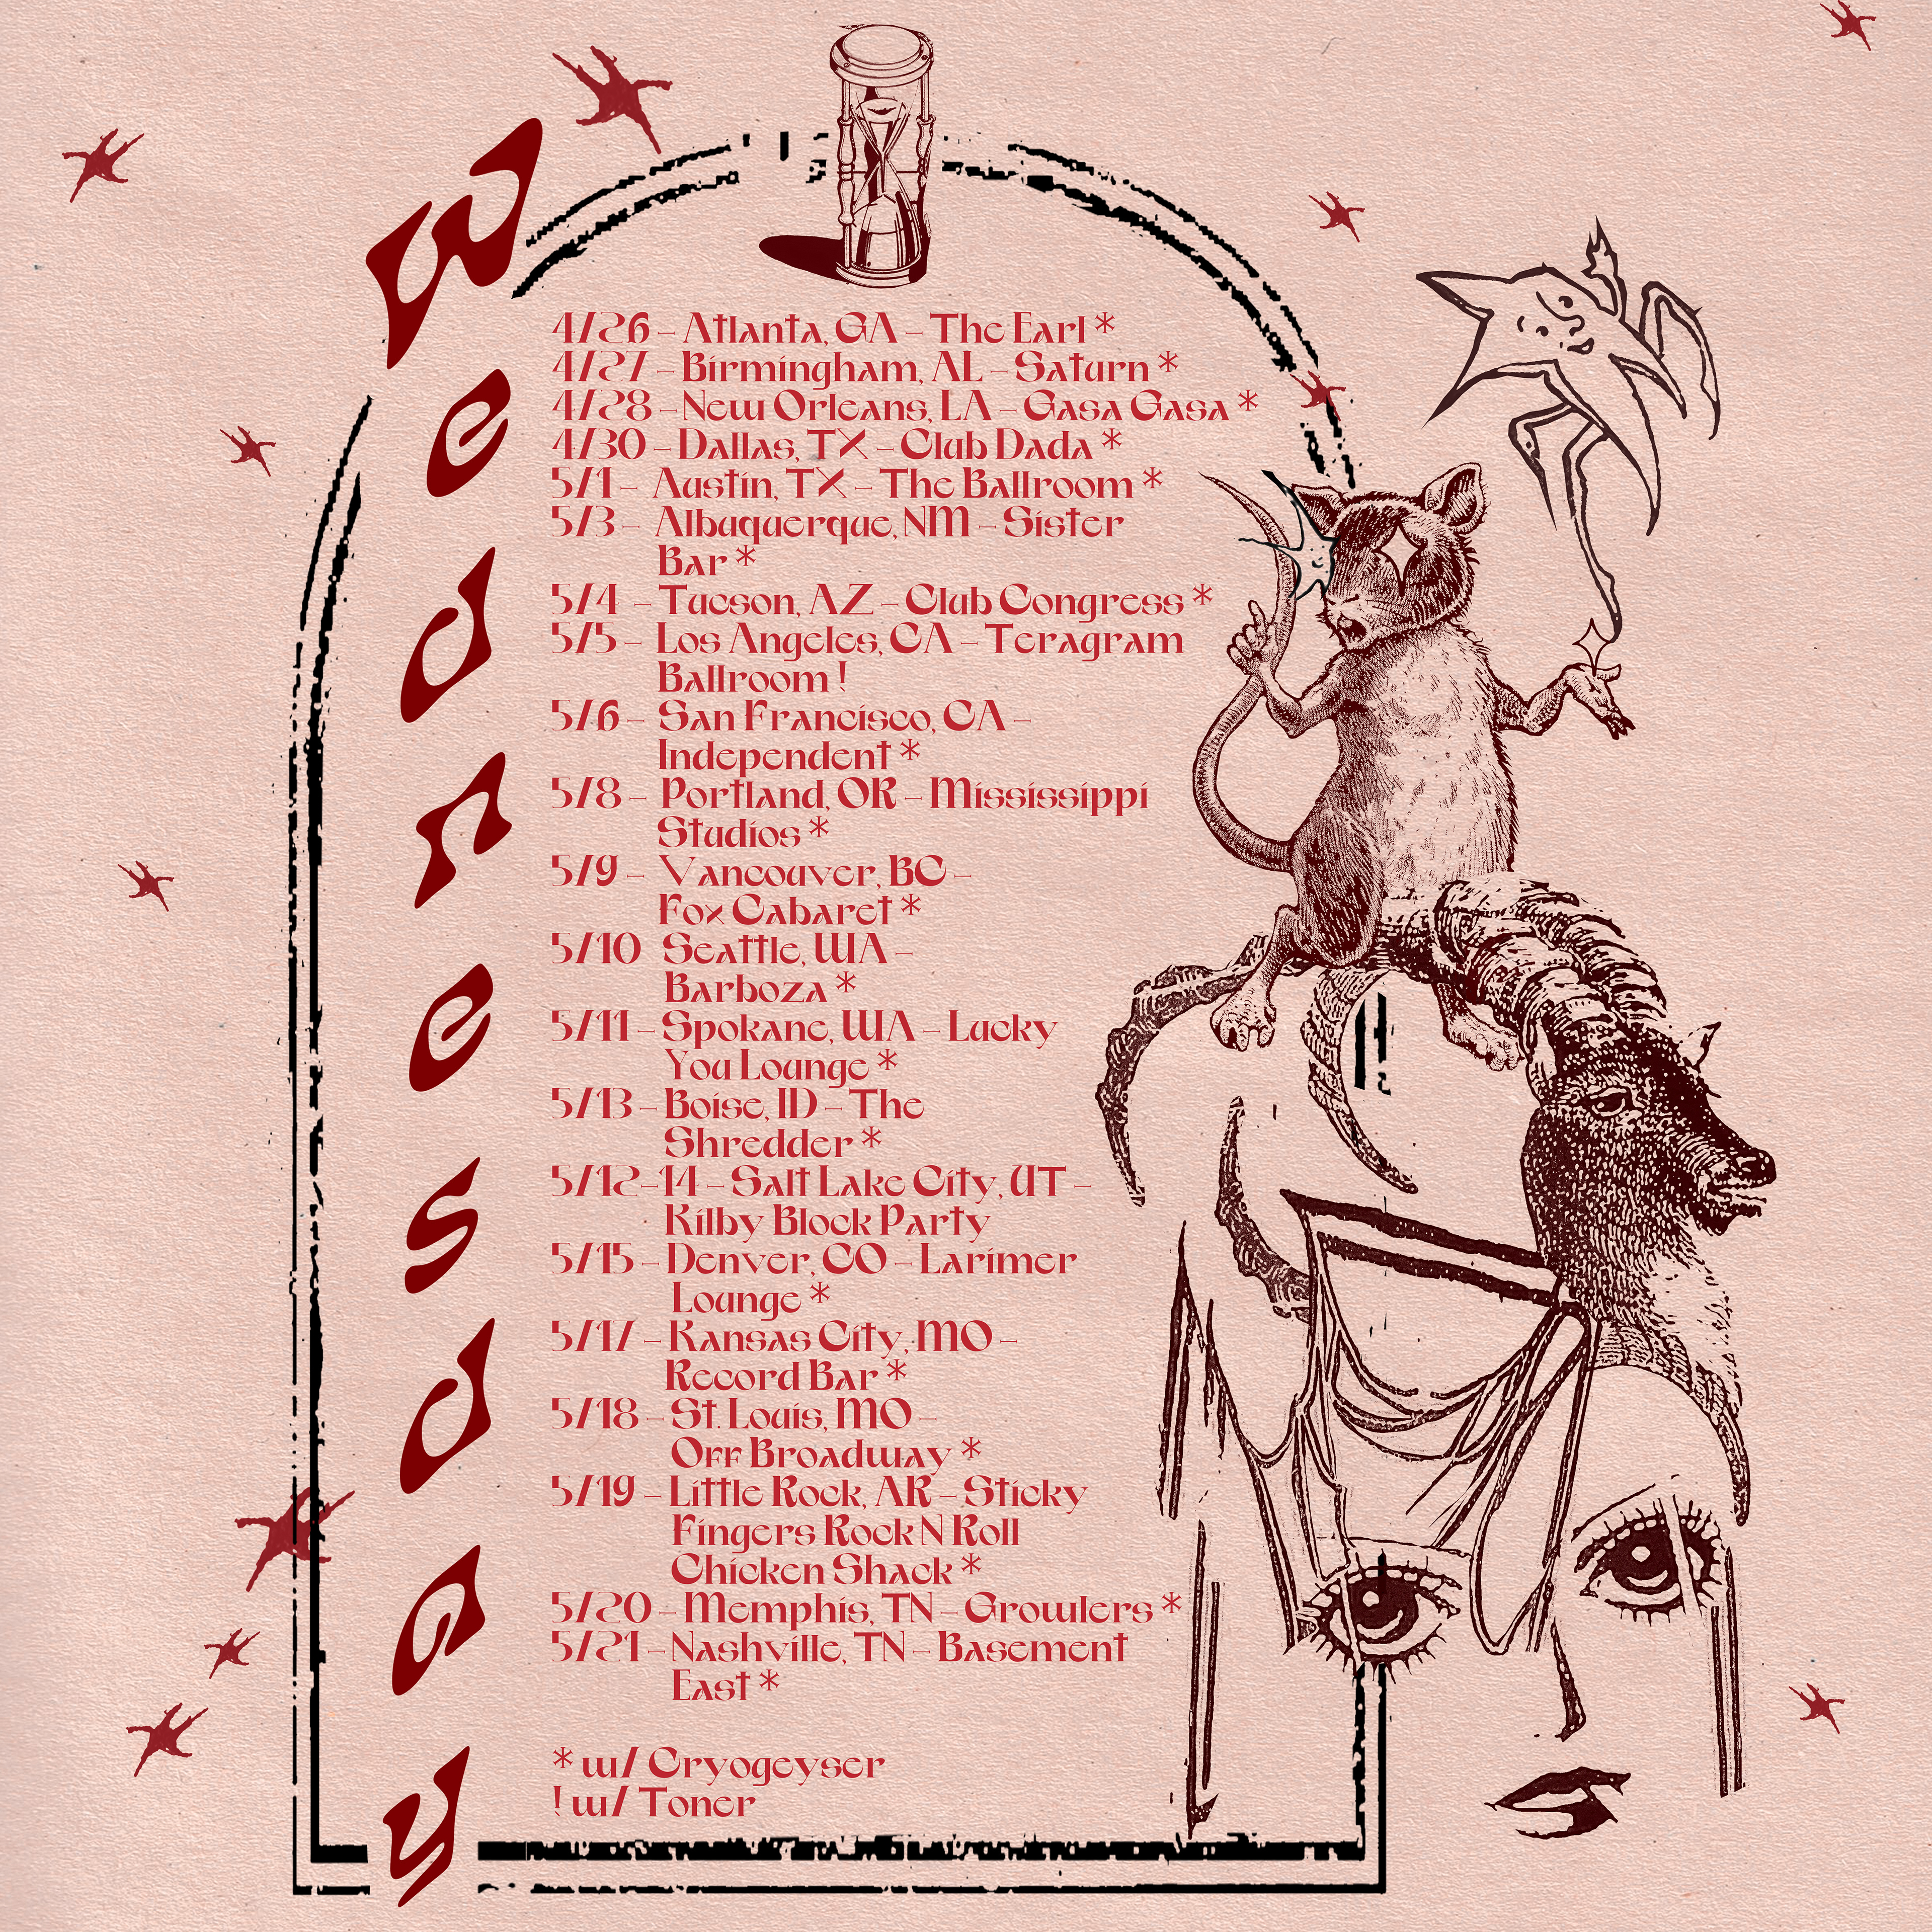 Wednesday
4/26 - Atlanta, GA - The Earl *
4/27 - Birmingham, AL - Saturn *
4/28 - New Orleans, LA - Gasa Gasa *
4/30 - Dallas, TX - Club Dada *
5/1 - Austin, TX - The Ballroom *
5/3 - Albuquerque, NM - Sister
Bar *
5/4 - Tucson, AZ - Club Congress *
5/5 - Los Angeles, CA - Teragram
Ballroom !
5/6 - San Francisco, CA -
Independent *
5/8 - Portland, OR - Mississippi
Studios *
5/9 - Vancouver, BC -
Fox Cabaret *
5/10 Seattle, WA -
Barboza *
5/11 - Spokane, WA - Lucky
You Lounge *
5/13 - Boise, ID - The
Shredder *
5/12-14 - Salt Lake City, UT -
Kilby Block Party
5/15 - Denver, CO - Larimer
Lounge *
5/17 - Kansas City, MO -
Record Bar *
5/18 - St. Louis, MO -
Off Broadway *
5/19 - Little Rock, AR - Sticky
Fingers Rock N Roll
Chicken Shack *
5/20 - Memphis, TN - Growlers *
5/21 - Nashville, TN - Basement
East *
* w/ Cryogeyser
! w/ Toner